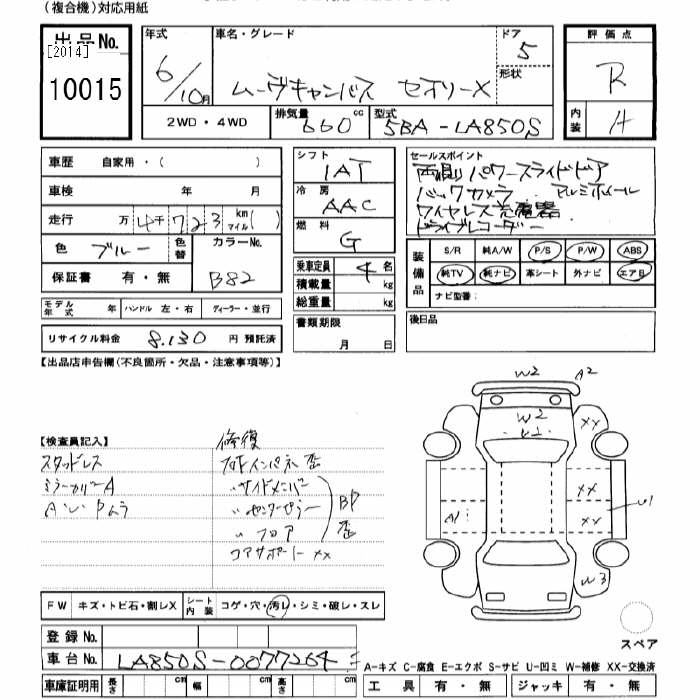 (複合機)対応用紙
出品No. [2014] 10015
年式 6/10月
車名・グレード ムーヴキャンバス セオリーX
ドア 5
形状
評価点 R
内装 A
2WD・4WD
排気量 660 cc
型式 5BA-LA850S
車歴 自家用・( )
車検 年 月
走行 万4千723 km マイル( )
色 ブルー 色替
カラーNo. B82
保証書 有・無
シフト IAT
冷房 AAC
燃料 G
乗車定員 4名
積載量 kg
総重量 kg
セールスポイント
両側パワースライドドア
バックカメラ アルミホイール
ワイヤレス充電器
ドライブレコーダー
装備品 S/R 純A/W P/S P/W ABS
純TV 純ナビ 革シート 外ナビ エアB
ナビ型番:
モデル年式 年 ハンドル 左・右 ディーラー・並行
リサイクル料金 8,130 円 預託済
書類期限 月 日
後日品
【出品店申告欄(不良箇所・欠品・注意事項等)】
W2 A2
W2 XX
【検査員記入】 修復
スタッドレス
ミラーカバーA
サイドメンバー
センターピラー BP歪
フロア
コアサポート XX
XX
XX
A1 U1
W3
FW キズ・トビ石・割レX シート内装 コゲ・穴・汚レ・シミ・破レ・スレ
スペア
登録No.
車台No. LA850S-0077264
A-キズ C-腐食 E-エクボ S-サビ U-凹ミ W-補修 XX-交換済
車庫証明用 長さ cm 幅 cm 高さ cm
工具 有・無 ジャッキ 有・無